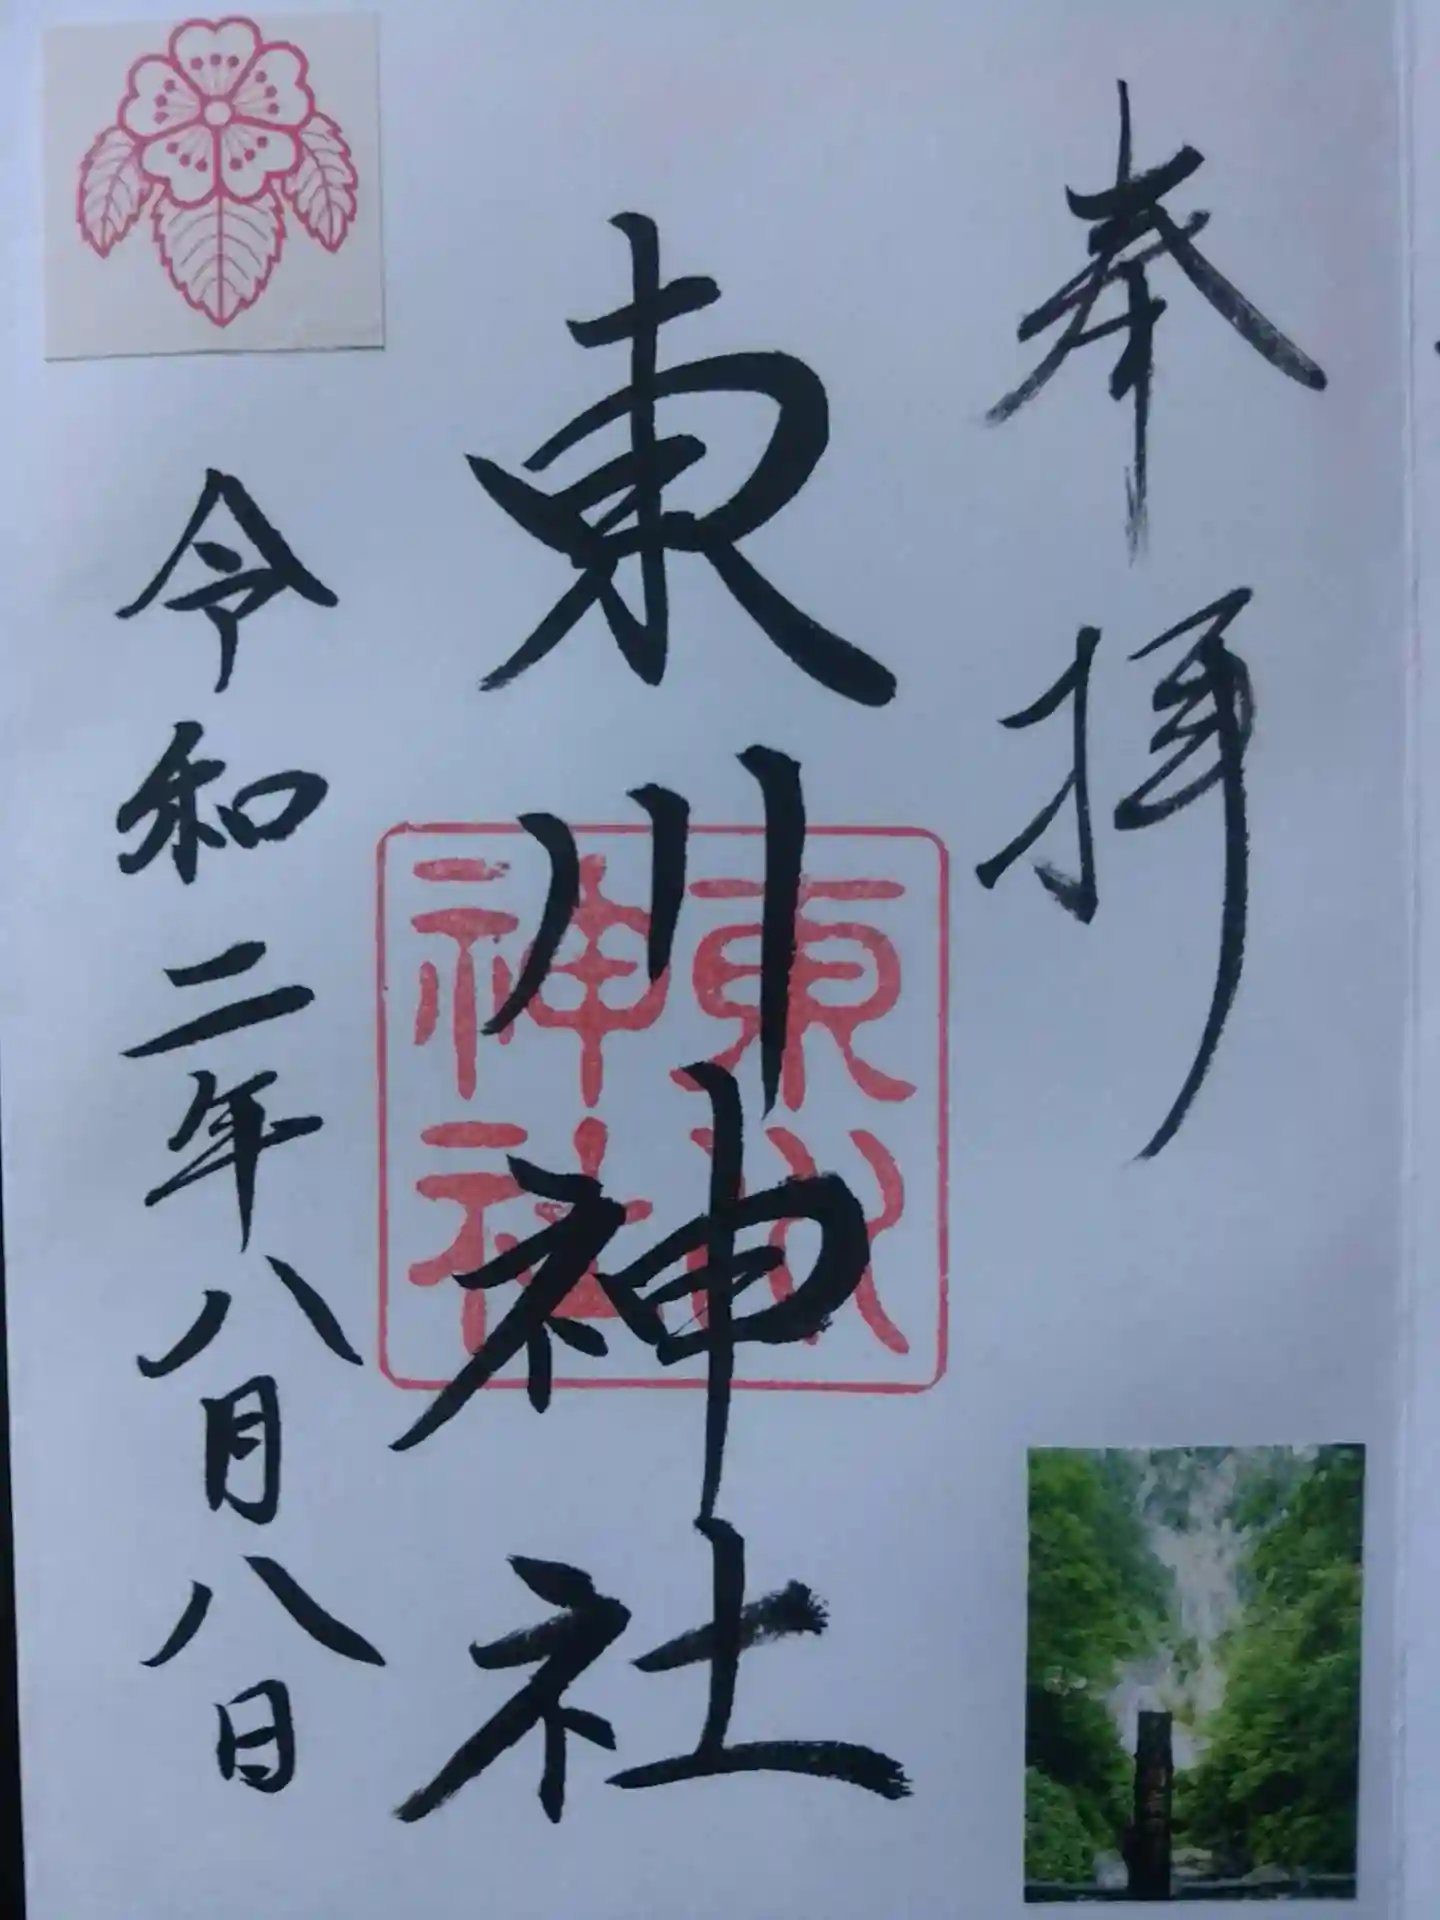 奉拝
東川神社
東川
神社
令和二年八月八日